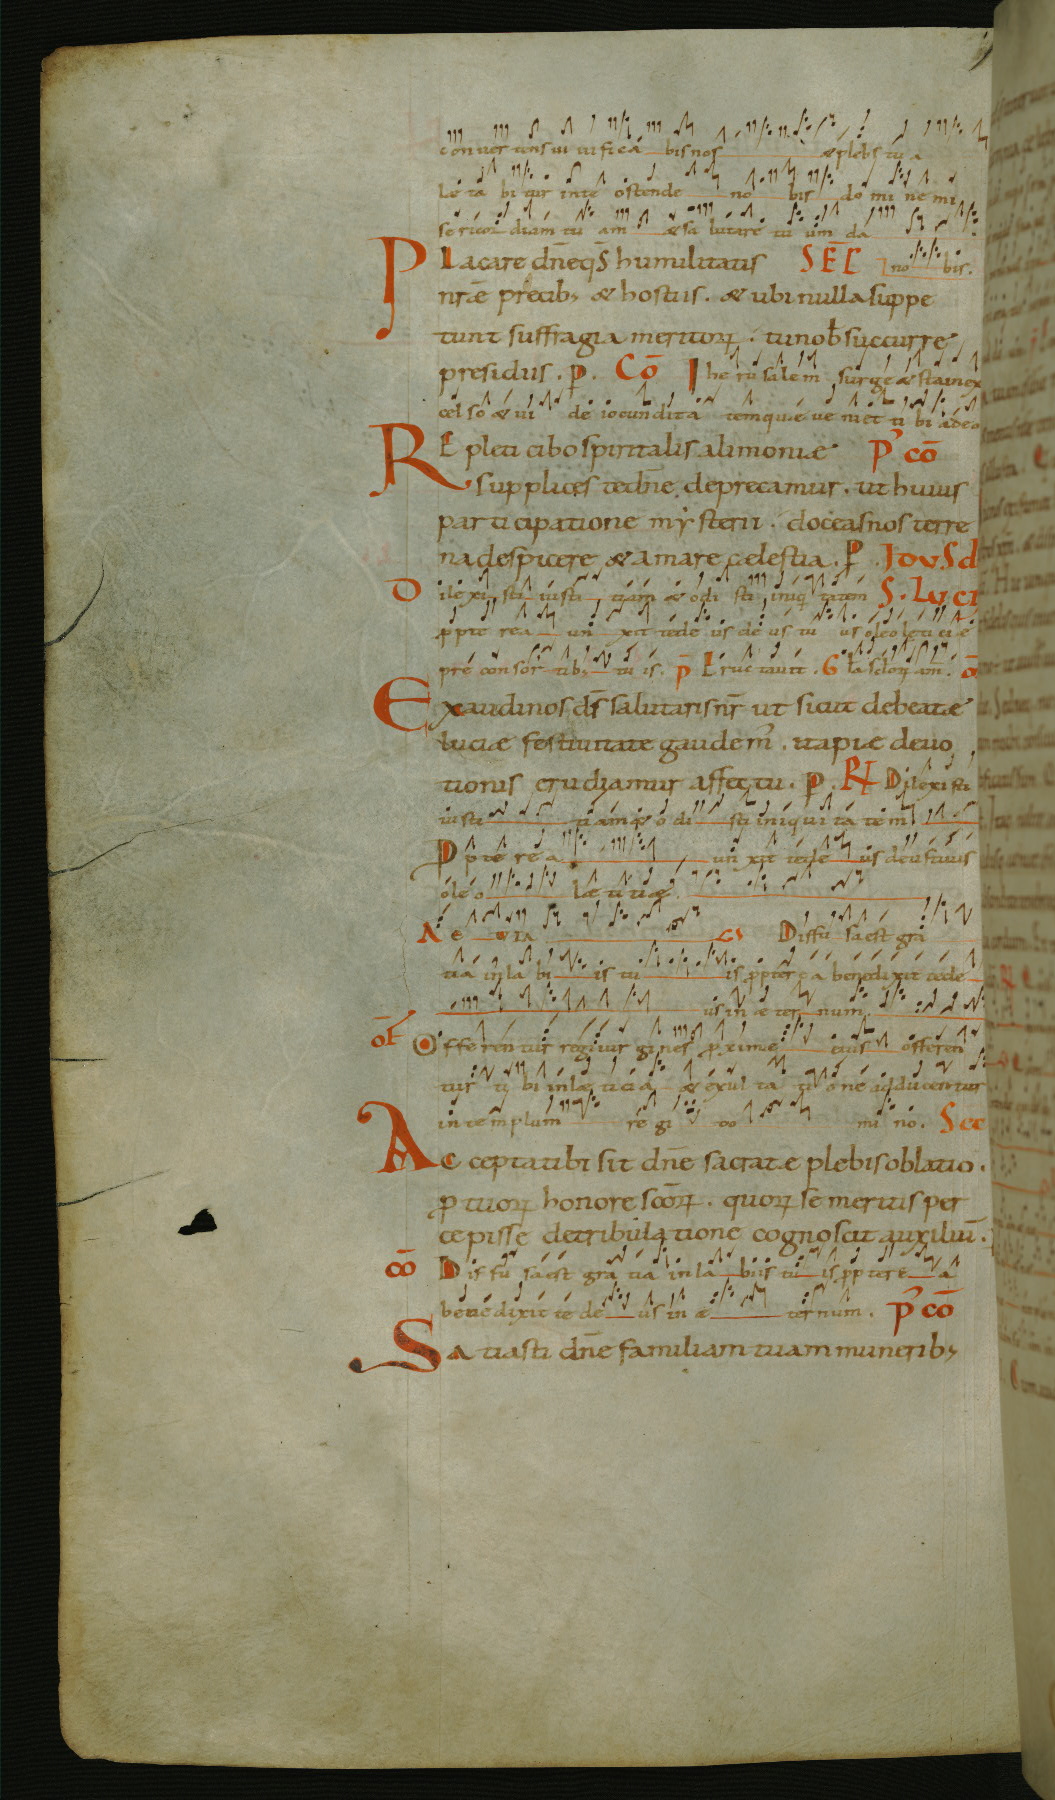 conuertens uiuificabis nos & plebs tua
Letabitur inte ostende nobis domine mi
sericordiam tuam & salutare tuum da
Placare dn̄e q̄s humilitatis SEC nobis.
nr̄ae precib; & hostiis. & ubi nulla suppe
tunt suffragia meritorꝝ. tu nob̄ succurre
presidiis. P. CŌ Iherusalem surge & sta inex
celso & uide iocunditatem quae ueniet tibi adeo
Repleti cibo spiritalis alimoniae P' CŌ
supplices te dn̄e deprecamur. ut huius
participatione mysterii. doceas nos terre
na despicere & amare celestia. P. IDUS D
Dilexisti iustitiam & odisti iniqtatem S. LUCI
ꝓpterea unxit te deus deus tuus oleo letitiae
pre consortib; tuis. p̄ Eructauit. Gla sclorꝝ am.
Exaudi nos ds̄ salutaris nr̄ ut sicut debeatae
luciae festiuitate gaudem'. ita piae deuo
tionis erudiamur affectu. P. R̄ Dilexisti
iustitiam & odisti iniquitatem
Ppterea unxit te deus deus tuus
oleo laetitiae
AEUIA UV Diffusa est gra
tia inlabiis tuis ꝓpterea benedixit te de
us in aeternum
OF Offerentur regi uirgines ꝓximae eius offeren
tur tibi inlaetitia & exultatione adducentur
in templum regi do mino. SEC
Accepta tibi sit dn̄e sacratae plebis oblatio.
ꝓ tuorꝝ honore scōrꝝ. quorꝝ se meritis per
cepisse detribulatione cognoscit auxiliū.
CŌ Diffusa est gratia inlabiis tuis ꝓpterea
benedixit te deus in aeternum. P' CŌ
Satiasti dn̄e familiam tuam munerib;